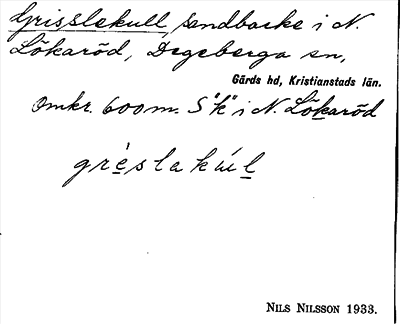 Grisslekull, sandbacke i N.
Lökaröd, Degeberga sn,
Gärds hd, Kristianstads län.
Omkr. 600 m. S "k" i N. Lökaröd
grèslakúl
NILS NILSSON 1933.